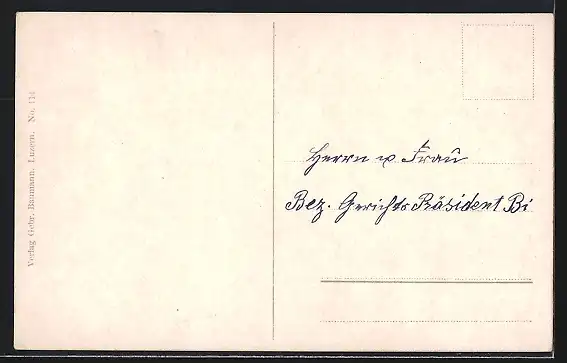 Verlag Gebr. Baumann, Luzern. No. 114
Herrn u Fraŭ
Bez. Gerichts Präsident Bi